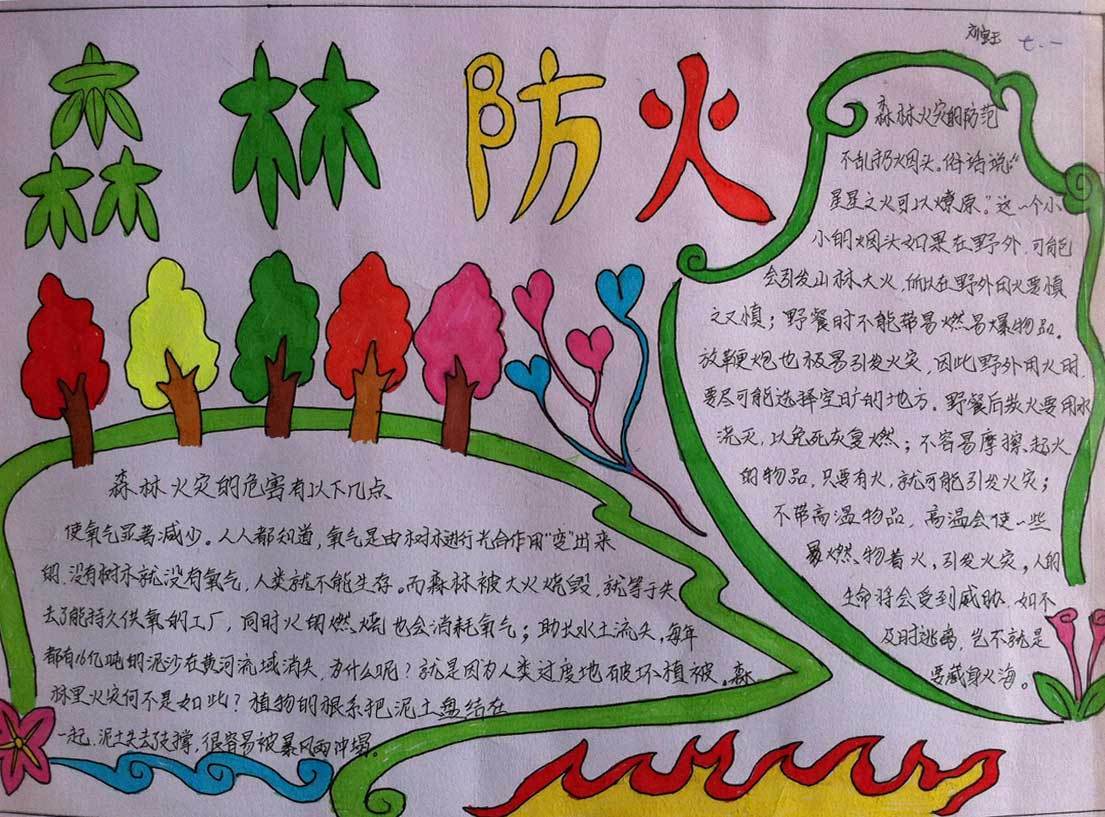 七.一
森林防火
森林火灾的防范
不乱扔烟头。俗话说“
星星之火可以燎原。”这一个小
小的烟头如果在野外，可能
会引发山林大火，所以在野外用火要慎
之又慎；野餐时不能带易燃易爆物品。
放鞭炮也极易引发火灾，因此野外用火时，
要尽可能选择空旷的地方。野餐后教火要用水
浇灭，以免死灰复燃；不容易摩擦起火
的物品，只要有火，就可能引发火灾；
不带高温物品，高温会使一些
易燃物着火，引发火灾，人的
生命将会受到威胁，如不
及时逃离，岂不就是
要藏身火海。
森林火灾的危害有以下几点
使氧气显著减少。人人都知道，氧气是由树木进行光合作用“变”出来
的，没有树木就没有氧气，人类就不能生存。而森林被大火烧毁，就等于失
去了能持久供氧的工厂，同时火的燃烧也会消耗氧气；助长水土流失，每年
都有16亿吨的泥沙在黄河流域消失，为什么呢？就是因为人类过度地破坏植被。森
林里火灾何不是如此？植物的根系把泥土盘结在
一起，泥土失去支撑，很容易被暴风雨冲塌。